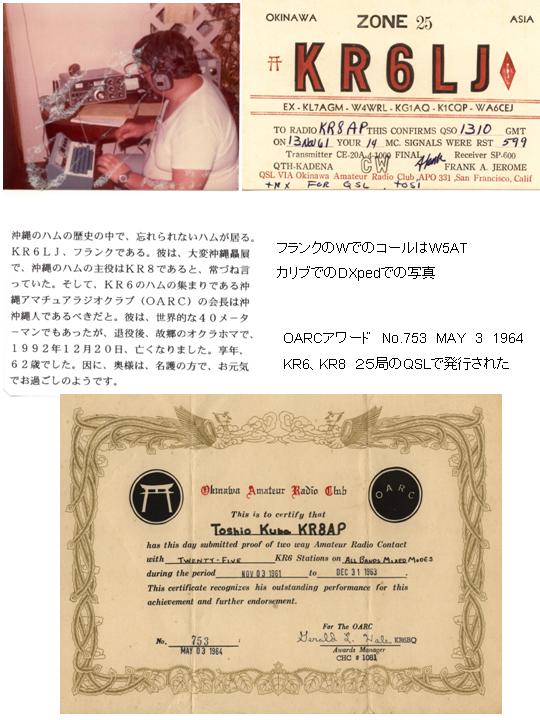 OKINAWA ZONE 25 ASIA
KR6LJ
EX - KL7AGM - W4WRL - KG1AQ - K1CQP - WA6CEJ
TO RADIO KR8AP THIS CONFIRMS QSO 1310 GMT
ON 13 NOV 61 YOUR 14 MC. SIGNALS WERE RST 599
Transmitter CE-20A 4-1000 FINAL Receiver SP-600
QTH-KADENA CW Frank FRANK A. JEROME
QSL VIA Okinawa Amateur Radio Club, APO 331, San Francisco, Calif
TNX FOR QSL
沖縄のハムの歴史の中で、忘れられないハムが居る。
KR6LJ、フランクである。彼は、大変沖縄贔屓
で、沖縄のハムの主役はKR8であると、常づね言
っていた。そして、KR6のハムの集まりである沖
縄アマチュアラジオクラブ(OARC)の会長は沖
沖縄人であるべきだと。彼は、世界的な40メータ
ーマンでもあったが、退役後、故郷のオクラホマで、
1992年12月20日、亡くなりました。享年、
62歳でした。因に、奥様は、名護の方で、お元気
でお過ごしのようです。
フランクのWでのコールはW5AT
カリブでのDXpedでの写真
OARCアワード No.753 MAY 3 1964
KR6、KR8 25局のQSLで発行された
Okinawa Amateur Radio Club
OARC
This is to certify that
Toshio Kuba KR8AP
has this day submitted proof of two way Amateur Radio Contact
with TWENTY-FIVE KR6 Stations on ALL BANDS MIXED MODES
during the period NOV 03 1961 to DEC 31 1963.
This certificate recognizes his outstanding performance for this
achievement and further endorsement.
For The OARC
No. 753 Gerald L. Hale KR6BQ
MAY 03 1964 Awards Manager
CHC # 1081